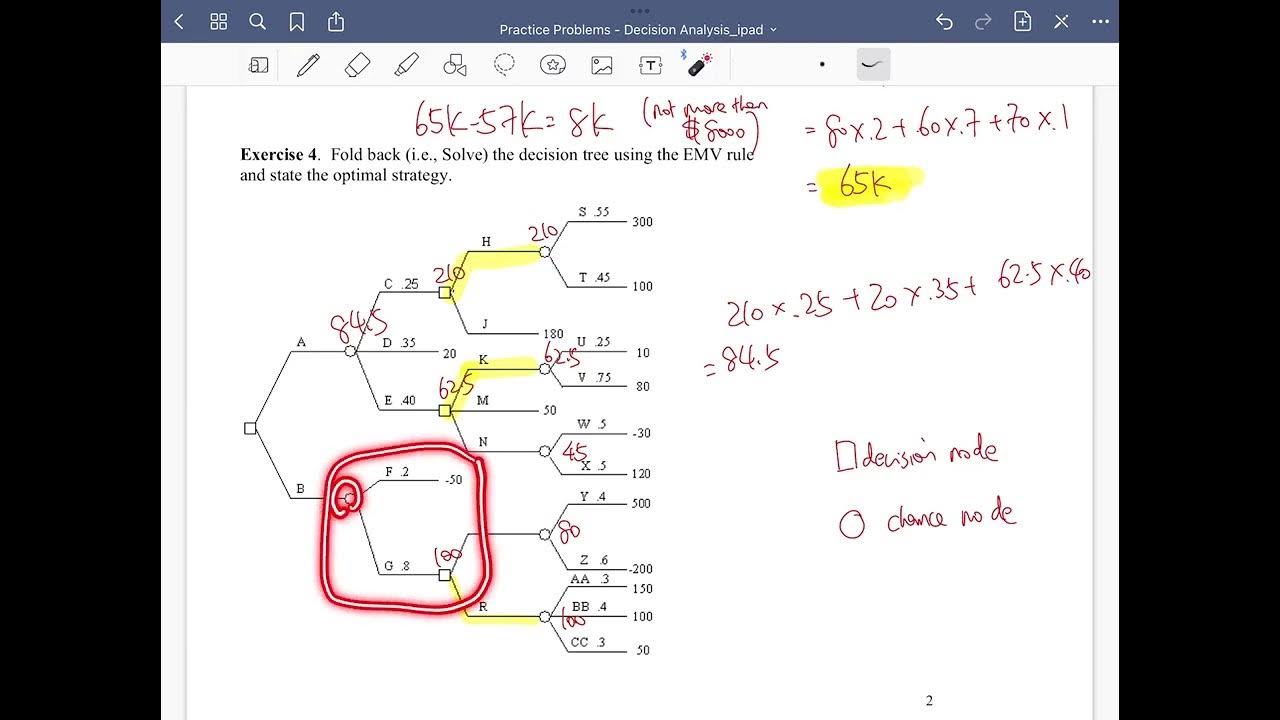 Practice Problems - Decision Analysis_ipad
65K-57K=8K (not more than $8000)
= 80x.2+60x.7+70x.1
= 65K
Exercise 4. Fold back (i.e., Solve) the decision tree using the EMV rule
and state the optimal strategy.
S .55 300
210
H
T .45 100
210
C .25
J 180
84.5
A
D .35 20
U .25 10
K 62.5
V .75 80
62.5
E .40
M 50
W .5 -30
N 45
X .5 120
210x.25+20x.35+ 62.5x.40
= 84.5
decision node
chance node
F .2 -50
B
Y .4 500
80
100
Z .6 -200
G .8
AA .3 150
R
BB .4 100
100
CC .3 50
2
T